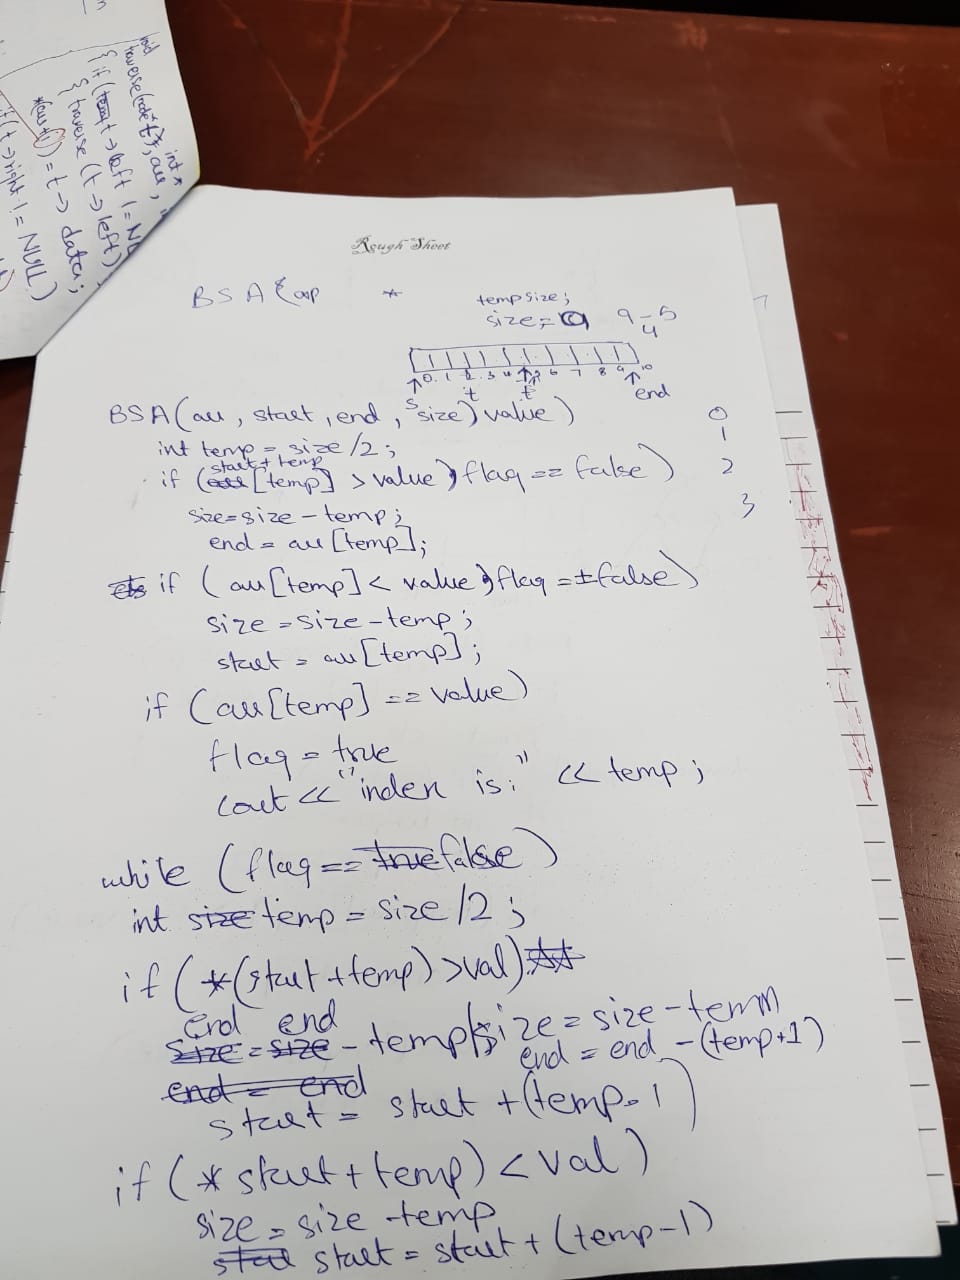 void
traverse(node *t, arr,
int *
{ if (temp t->left != NU
{ traverse (t->left)
*(arr+i) = t-> data;
if(t->right != NULL)
Rough Sheet
BSA
*
temp size;
size = 9
9-5
4
0 1 2 3 4 5 6 7 8 9 10
t t end
BSA(arr, start, end, size) value)
0
1
2
3
int temp = size/2;
start + temp
if (arr[temp] > value) flag == false)
size=size - temp;
end = arr[temp];
if (arr[temp] < value) flag = false)
size = size - temp;
start = arr[temp];
if (arr[temp] == value)
flag = true
cout << "index is:" << temp;
while (flag == true false)
int size temp = size/2;
if (*(start+temp) > val)
end end
size = size - temp size = size - tem
end = end - (temp+1)
end = end
start = start + (temp-1)
if (* start + temp) < val)
size = size - temp
start start = start + (temp-1)